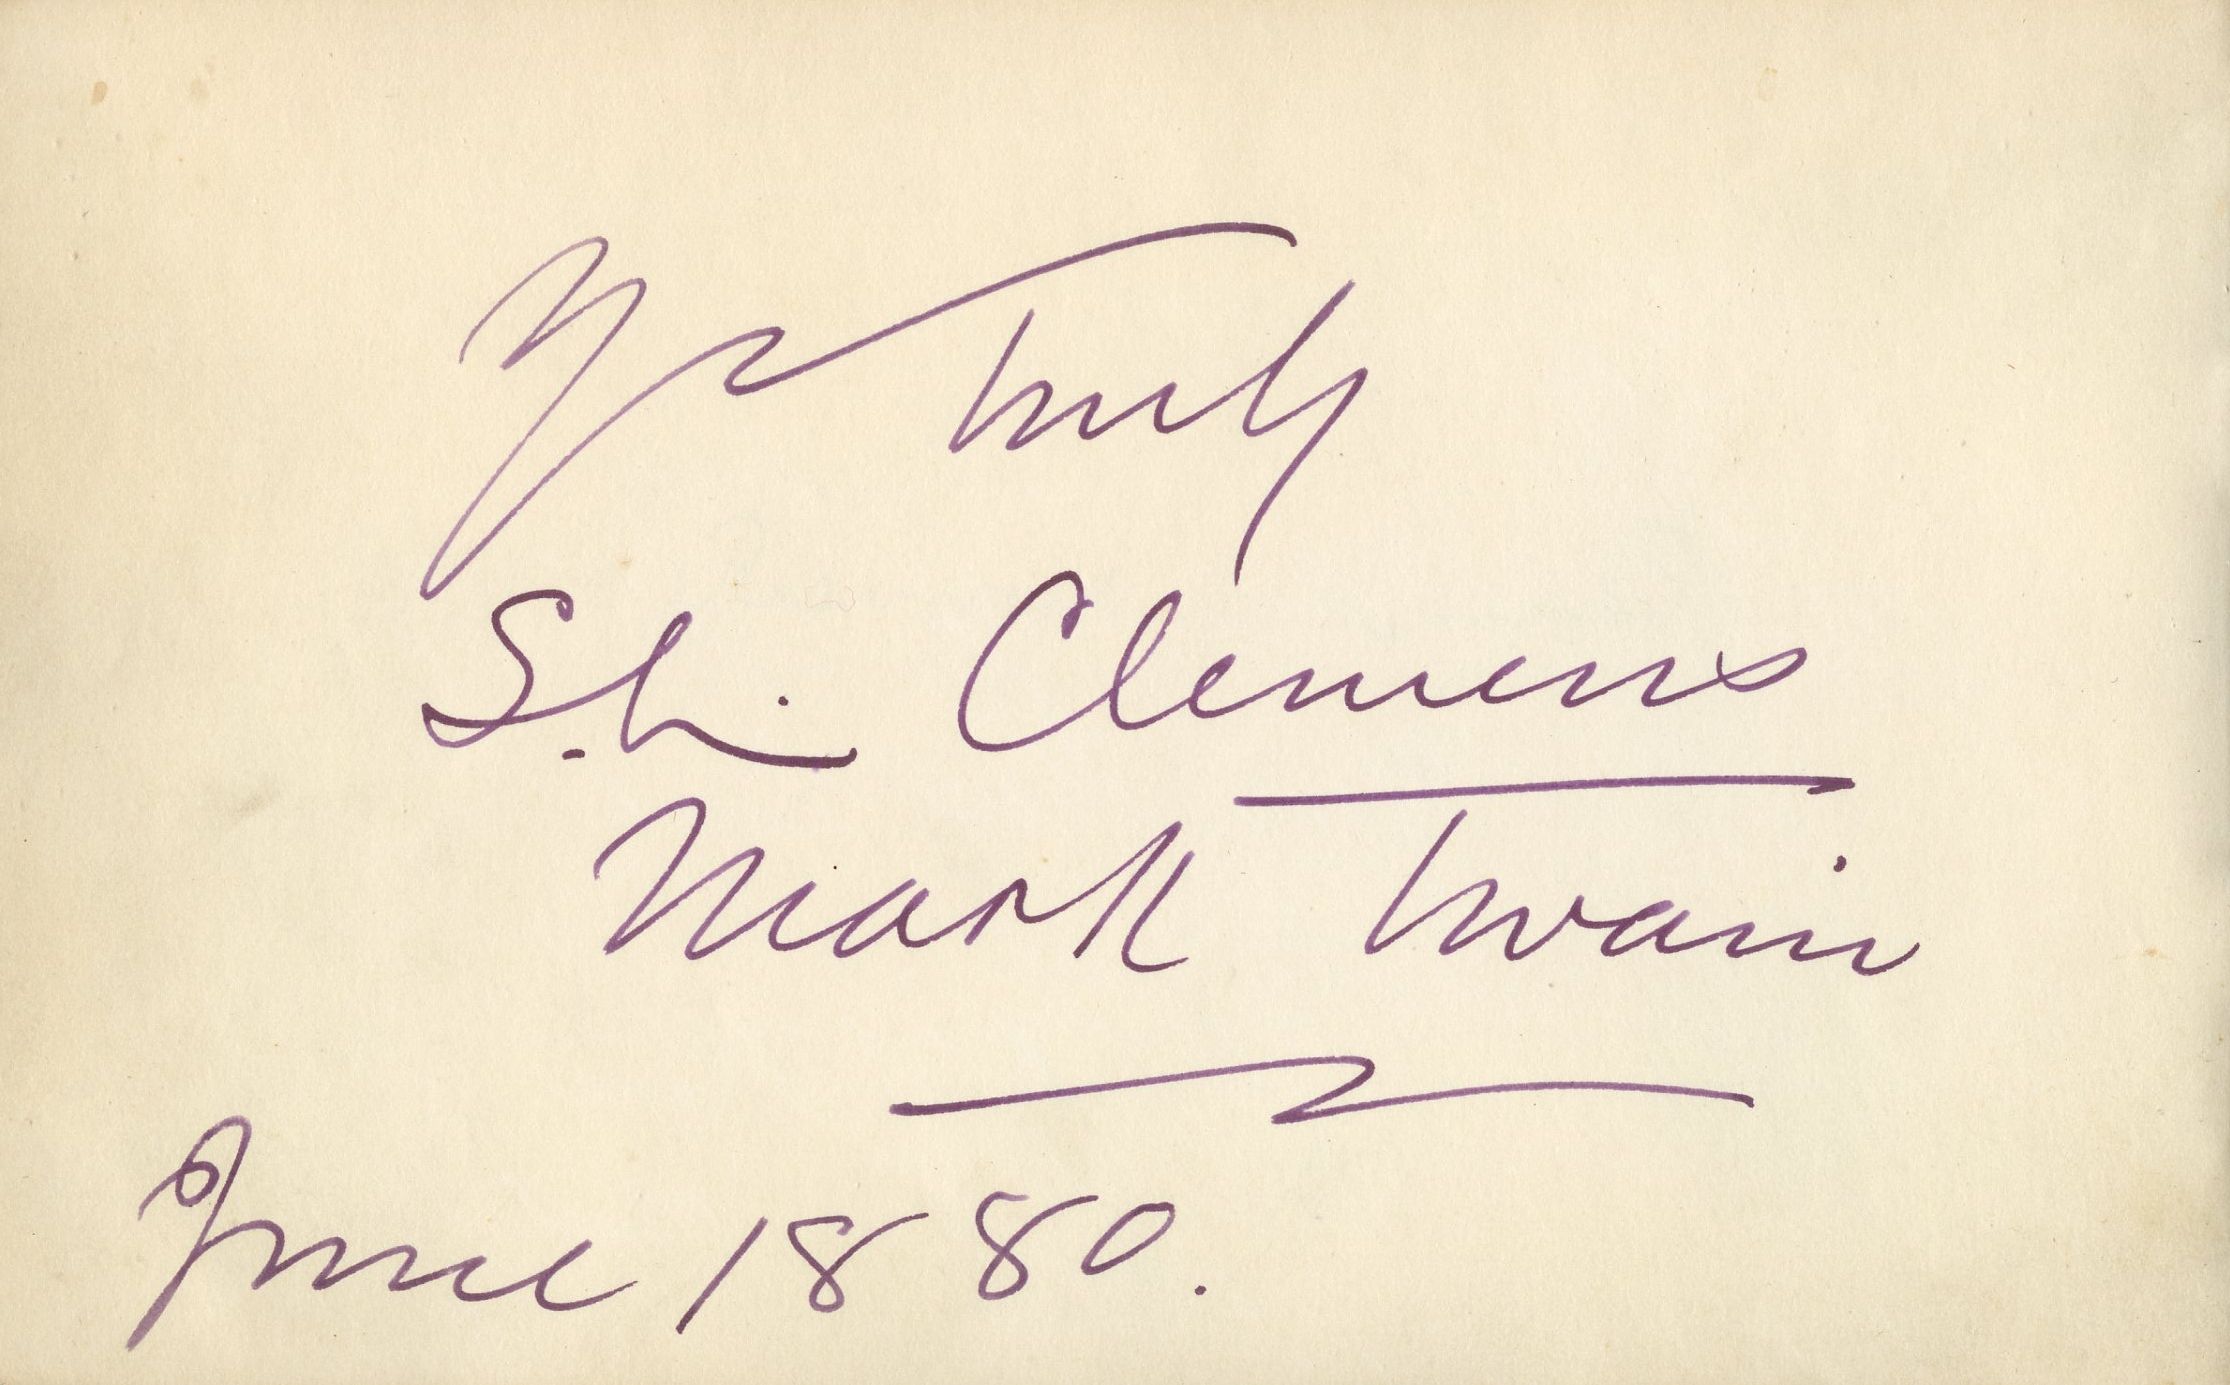 Yrs Truly
S. L. Clemens
Mark Twain
June 1880.